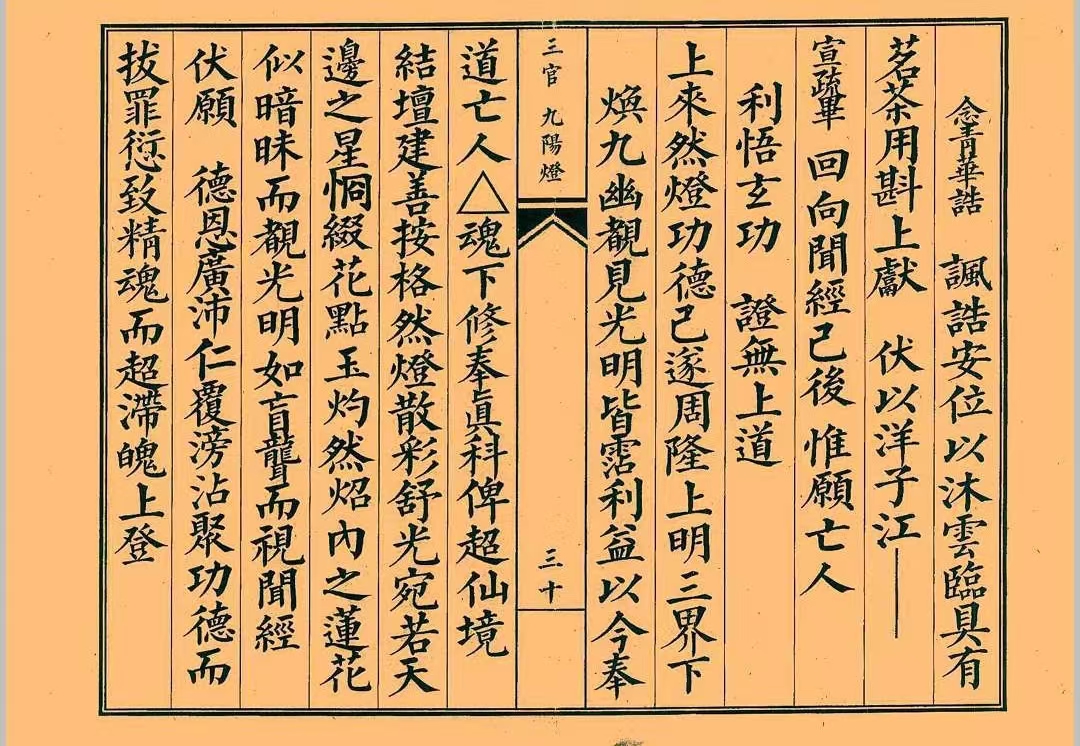 念青華誥　諷誥安位以沐雲臨具有
茗茶用斟上獻　伏以洋子江——
宣疏畢　回向聞經已後　惟願亡人
利悟玄功　證無上道
上來然燈功德已遂周隆上明三界下
煥九幽覩見光明皆霑利益以今奉
三官　九陽燈
三十
道亡人△魂下修奉眞科俾超仙境
結壇建善按格然燈散彩舒光宛若天
邊之星恫綴花點玉灼然炤內之蓮花
似暗昧而覩光明如盲聾而視聞經
伏願　德恩廣沛仁覆滂沾聚功德而
拔罪愆致精魂而超滯魄上登